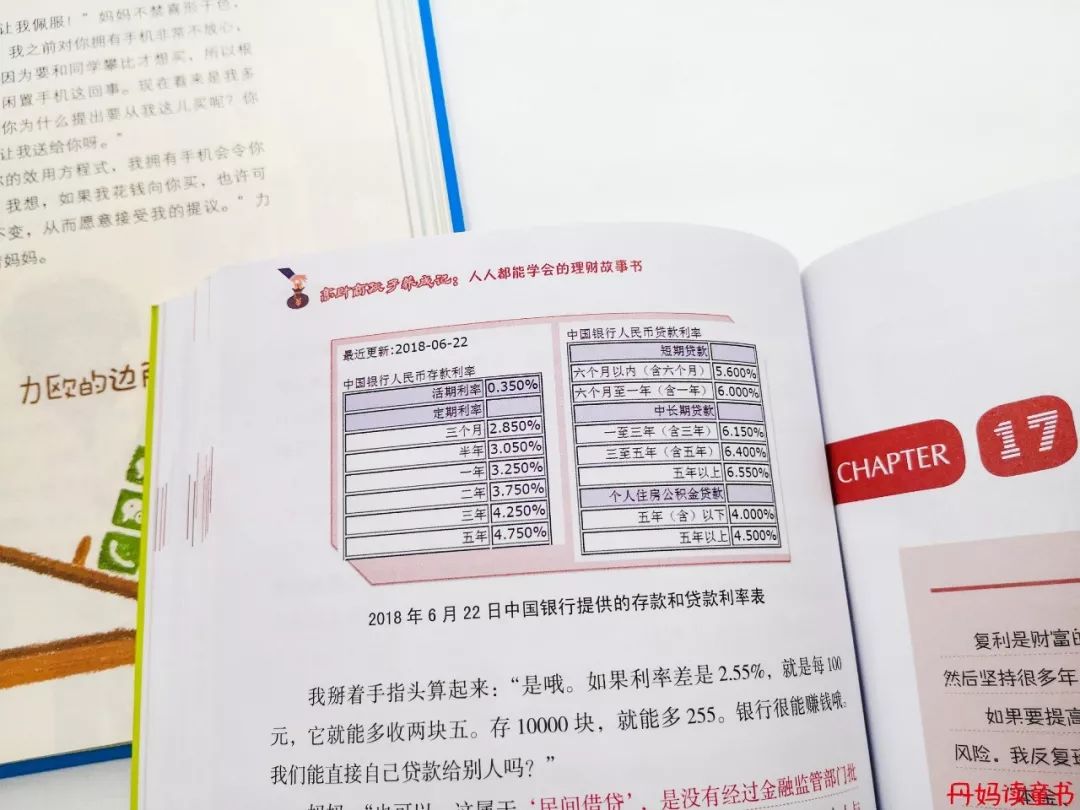 让我佩服！”妈妈不禁喜形于色，
我之前对你拥有手机非常不放心，
因为要和同学攀比才想买，所以根
闲置手机这回事。现在看来是我多
你为什么提出要从我这儿买呢？你
让我送给你呀。”
的效用方程式，我拥有手机会令你
我想，如果我花钱向你买，也许可
不变，从而愿意接受我的提议。”力
妈妈。
力欧的边
高财商孩子养成记：人人都能学会的理财故事书
最近更新:2018-06-22
中国银行人民币存款利率
活期利率 0.350%
定期利率
三个月 2.850%
半年 3.050%
一年 3.250%
二年 3.750%
三年 4.250%
五年 4.750%
中国银行人民币贷款利率
短期贷款
六个月以内（含六个月） 5.600%
六个月至一年（含一年） 6.000%
中长期贷款
一至三年（含三年） 6.150%
三至五年（含五年） 6.400%
五年以上 6.550%
个人住房公积金贷款
五年（含）以下 4.000%
五年以上 4.500%
2018 年 6 月 22 日中国银行提供的存款和贷款利率表
我掰着手指头算起来：“是哦。如果利率差是 2.55%，就是每 100
元，它就能多收两块五。存 10000 块，就能多 255。银行很能赚钱哦。
我们能直接自己贷款给别人吗？”
妈妈：“也可以，这属于‘民间借贷’，是没有经过金融监管部门批
CHAPTER 17
复利是财富的
然后坚持很多年
如果要提高
风险。我反复
本金
丹妈读童书